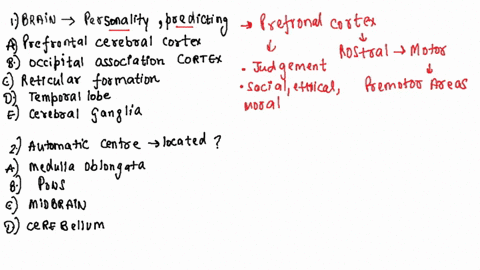 1) BRAIN → Personality, predicting
A) Prefrontal cerebral cortex
B) Occipital association CORTEX
C) Reticular formation
D) Temporal lobe
E) Cerebral Ganglia
2) Automatic centre → located ?
A) Medulla oblongata
B) PONS
C) MIDBRAIN
D) CEREBELLUM
→ Prefronal cortex
• Judgement
• Social, ethical, moral
Rostral → Motor
Premotor Areas